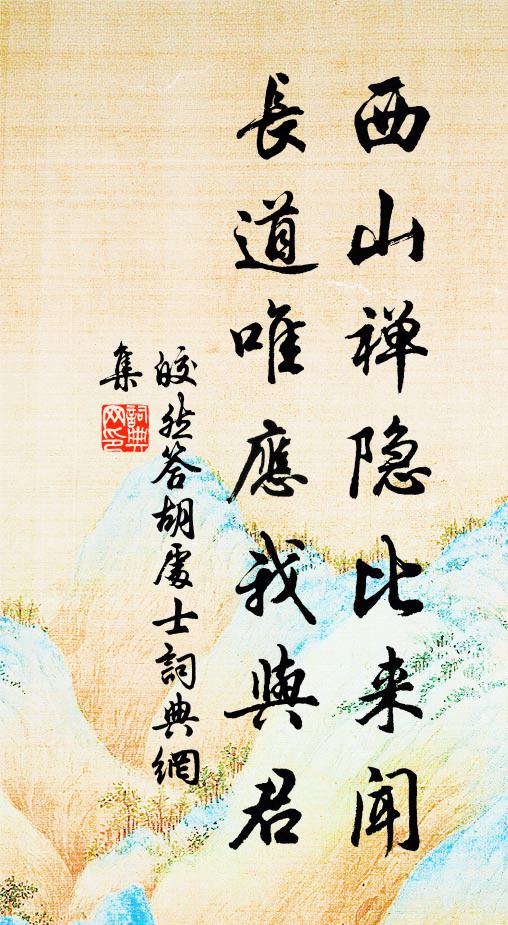 西山禅隐比来闻
長道唯應我與君
皎然答胡處士詞典網
集
詞典
网印